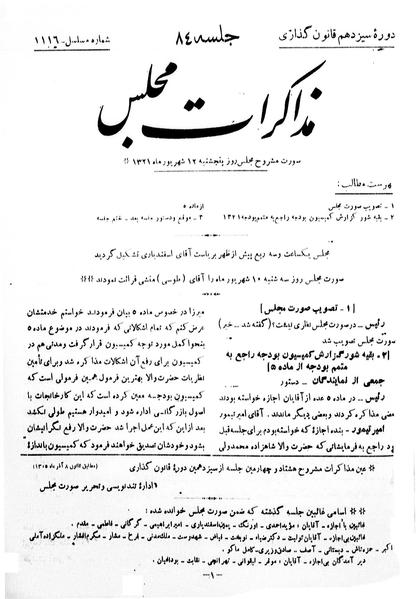 دورهٔ سیزدهم قانون گذاری
جلسه ۸۴
شماره مسلسل - ۱۱۱۶
مذاکرات مجلس
صورت مشروح مجلس روز پنجشنبه ۱۲ شهریور ماه ۱۳۲۱
فهرست مطالب:
۱ - تصویب صورت مجلس
۲ - بقیه شور گزارش کمیسیون بودجه راجع به متمم بودجه ۱۳۲۱
از ماده ۵
۳ - موقع و دستور جلسه بعد - ختم جلسه
مجلس یکساعت و سه ربع پیش از ظهر بریاست آقای اسفندیاری تشکیل گردید
صورت مجلس روز سه شنبه ۱۰ شهریور ماه را آقای (طوسی) منشی قرائت نمودند
[۱ - تصویب صورت مجلس]
رئیس - در صورت مجلس نظری نیست؟ (گفته شد - خیر)
صورت مجلس تصویب شد
[۲ - بقیه شور گزارش کمیسیون بودجه راجع به
متمم بودجه از ماده ۵]
جمعی از نمایندگان - دستور
رئیس - در ماده ۵ عده از آقایان اجازه خواسته بودند
بعضی مذاکره کردند و بعضی دیگر ماندند. آقای امیر تیمور
امیر تیمور - بنده اجازه که خواسته بودم برای جلسه قبل
راجع به فرمایشاتی که حضرت والا شاهزاده محمد ولی
میرزا در خصوص ماده ۵ بیان فرمودند خواستم خدمتشان
عرض کنم که تمام اشکالاتی که فرمودند در موضوع ماده ۵
بنحوا کمل مورد توجه کمیسیون قرار گرفت و مدتی هم در
کمیسیون برای رفع آن اشکالات مذاکره شد و برای تأمین
نظریات حضرت والا بهترین فرمول همین فرمولی است که
کمیسیون بودجه معین کرده است که این کارخانجات با
اصول بازرگانی اداره شود و امیدوار هستیم طولی نکشد
بعد از این که این عمل اجرا شد حضرت والا رفع نگرانیشان
بشود و خودشان تصدیق خواهند فرمود که کمیسیون باندازهٔ
عین مذاکرات مشروح هشتاد و چهارمین جلسه از سیزدهمین دورهٔ قانون گذاری
(مطابق قانون ۸ آذر ماه ۱۳۰۵)
ادارهٔ تند نویسی و تحریر صورت مجلس
اسامی غائبین جلسه گذشته که ضمن صورت مجلس خوانده شده:
غائبین با اجازه - آقایان: مؤید احمدی - اورنگ - یمین اسفندیاری - امیر ابراهیمی - گرگانی - فاطمی - مقدم -
دیر آمدگان بی اجازه - آقایان: موقر - لیقوانی - تهرانچی - نقابت - بوداغیان -
- ۱ -